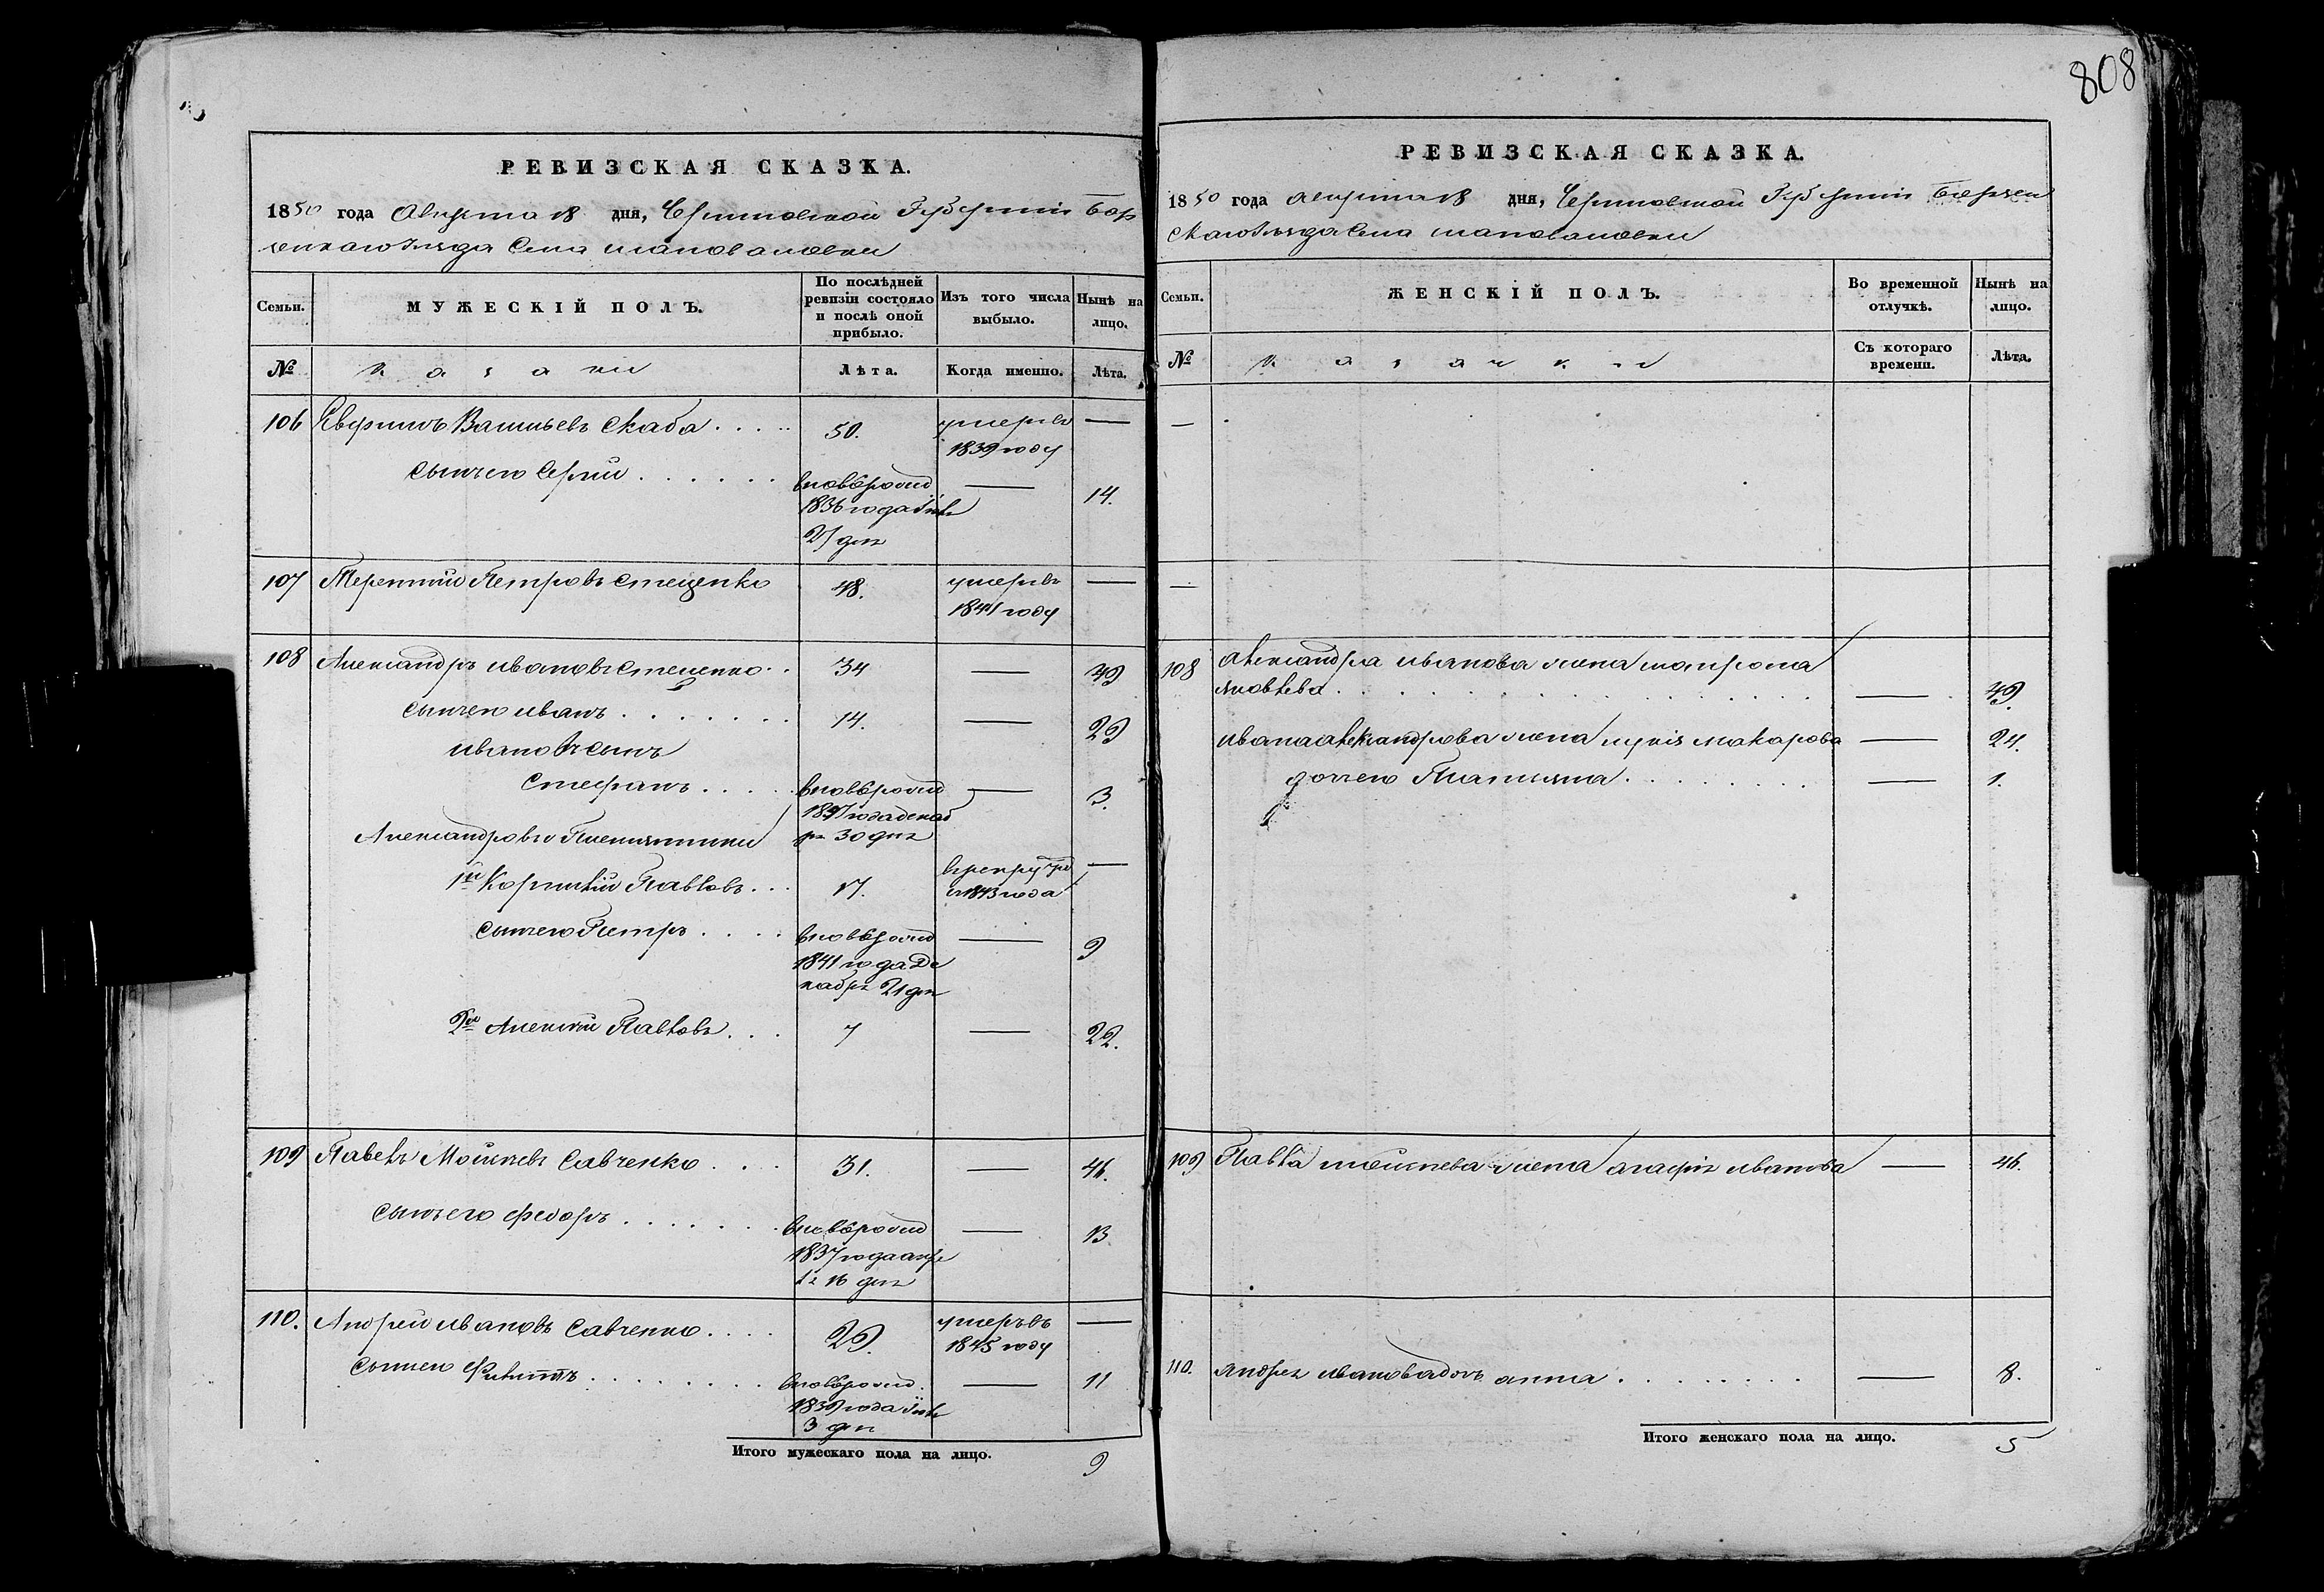 808
РЕВИЗСКАЯ СКАЗКА.
1850 года Августа 18 дня, Черниговской Губернии Бор
зенскаго Уезда Села Шаповаловки
Семьи.
МУЖЕСКІЙ ПОЛЪ.
По послѣдней ревизіи состояло и послѣ оной прибыло.
Изъ того числа выбыло.
Нынѣ на лицо.
№ Казаки Лѣта. Когда именно. Лѣта.
106 Васильевъ Скаба 50. умеръ въ —
1839 году
сынъ его Сергий вновь рожд — 14.
1836 года
27 дня
107 Терентий Петровъ Стеценко 48. умеръ въ —
1841 году
108 Александръ Ивановъ Стеценко 34 — 49
сынъ его Иванъ 14. — 29
Ивановъ сынъ
Стефанъ вновь рожд — 3.
1847 года декаб
ря 30 дня
Александровы Племянники
1й Корнилий Павловъ 17. в рекрут —
с 1843 года
сынъ его Петръ вновь рожд — 9
1841 года Де
кабря 21 дня
2й Алексей Павловъ 7 — 22.
109 Павелъ Моисеевъ Савченко 31. — 46.
сынъ его Федоръ вновь рожд — 13
1837 года апре
ля 16 дня
110. Андрей Ивановъ Савченко 29. умеръ въ —
1845 году
сынъ его Филиппъ вновь рожд. — 11
1839 года
3 дня
Итого мужескаго пола на лицо. 9
РЕВИЗСКАЯ СКАЗКА.
1850 года августа 18 дня, Черниговской Губернии Борзен
скаго Уезда Села Шаповаловки
Семьи.
ЖЕНСКІЙ ПОЛЪ.
Во временной отлучкѣ.
Нынѣ на лицо.
№ Казачки Съ котораго времени. Лѣта.
—
—
108 Александра Иванова жена Матрона
Яковлева — 49.
Ивана Александрова жена Лукия Макарова — 24.
дочь его Татияна — 1.
109 Павла Моисеева жена Агафия Иванова — 46.
110. Андрея Иванова дочь Анна — 8.
Итого женскаго пола на лицо. 5